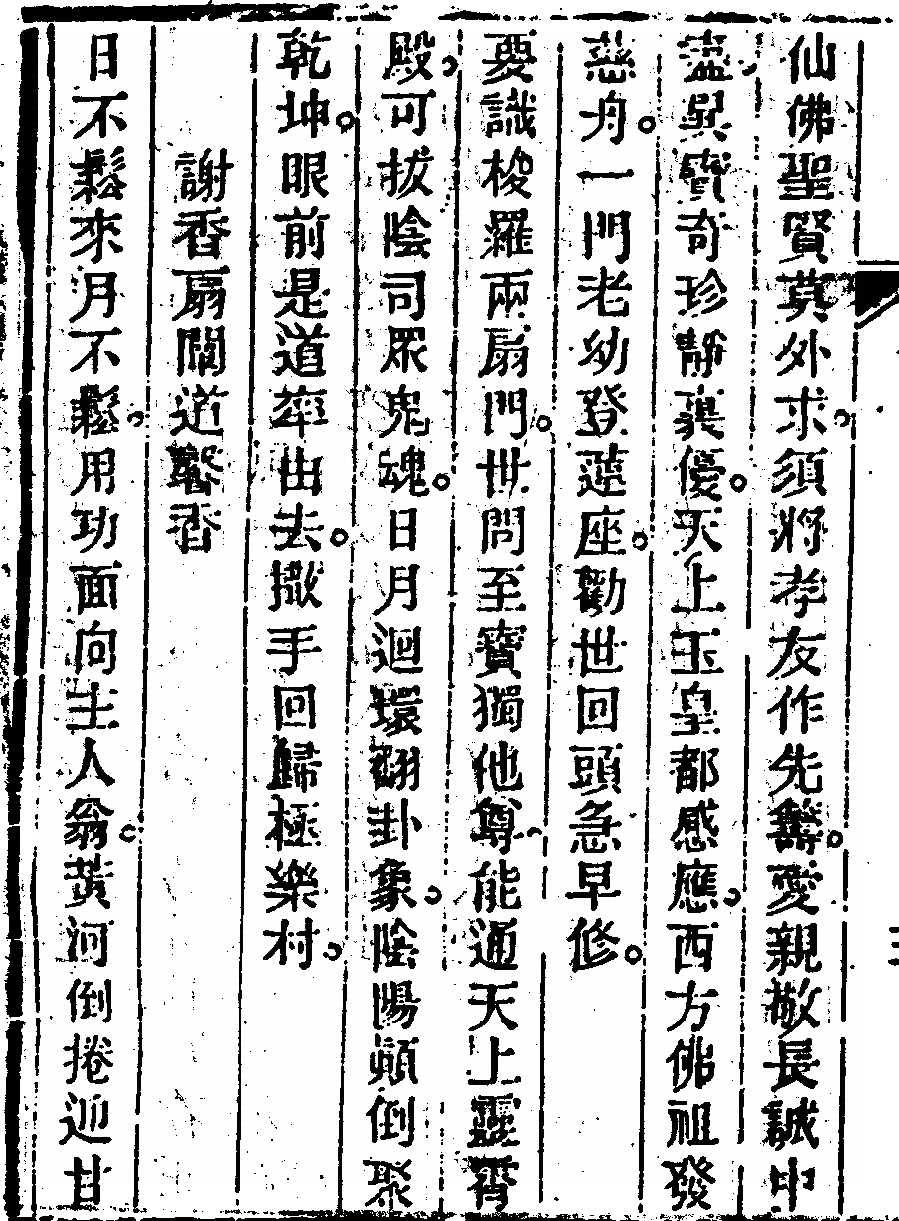 仙佛聖賢莫外求須將孝友作先籌。愛親敬長誠中
盡與寶奇珍靜裏優。天上玉皇都感應。西方佛祖發
慈舟。一門老幼登蓮座。勸世回頭急早修。
要識梭羅兩扇門。世間至寶獨他尊。能通天上靈霄
殿。可拔陰司眾鬼魂。日月迴環翻卦象。陰陽顛倒聚
乾坤。眼前是道率由去。撒手回歸極樂村。
謝香扇關道馨香
日不鬆來月不鬆。用功面向主人翁。黃河倒捲迎甘